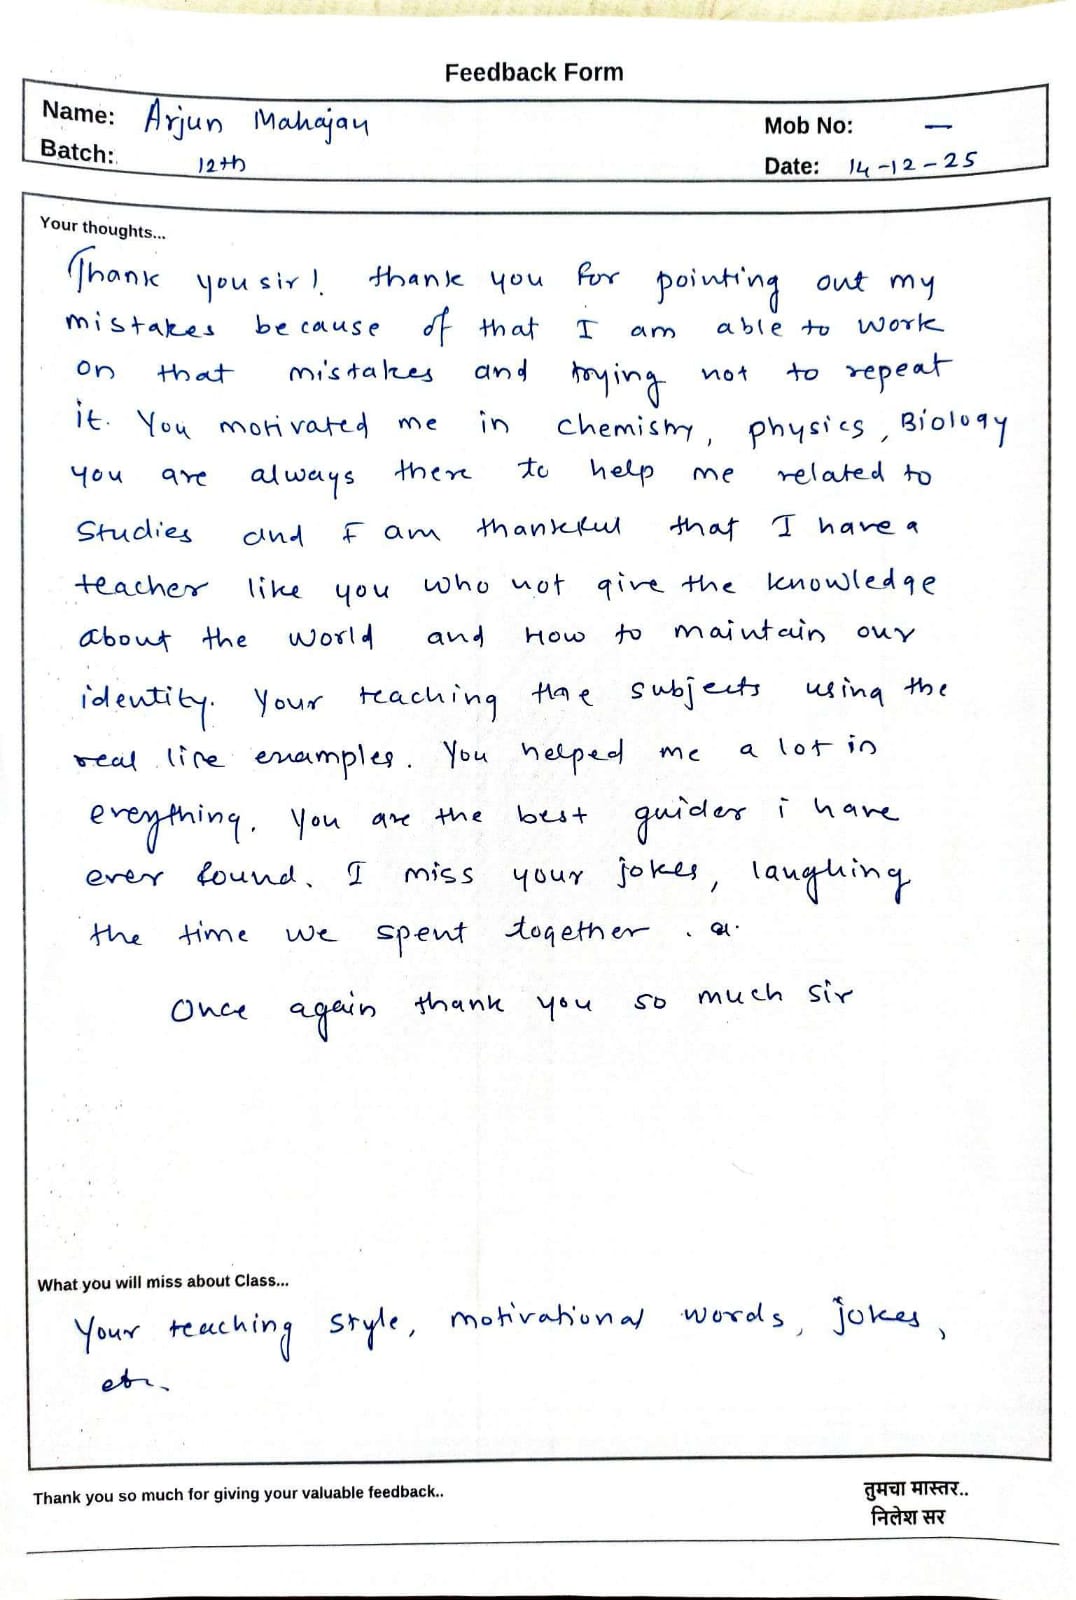 Feedback Form
Name: Arjun Mahajan
Mob No: —
Batch: 12th
Date: 14-12-25
Your thoughts...
Thank you sir! thank you for pointing out my
mistakes because of that I am able to work
on that mistakes and trying not to repeat
it. You motivated me in chemistry, physics, Biology
you are always there to help me related to
studies and I am thankful that I have a
teacher like you who not give the knowledge
about the world and How to maintain our
identity. Your teaching the subjects using the
real life examples. You helped me a lot in
everything. You are the best guider i have
ever found. I miss your jokes, laughing
the time we spent together.
Once again thank you so much sir
What you will miss about Class...
Your teaching style, motivational words, jokes,
etc.
Thank you so much for giving your valuable feedback..
तुमचा मास्तर..
निलेश सर